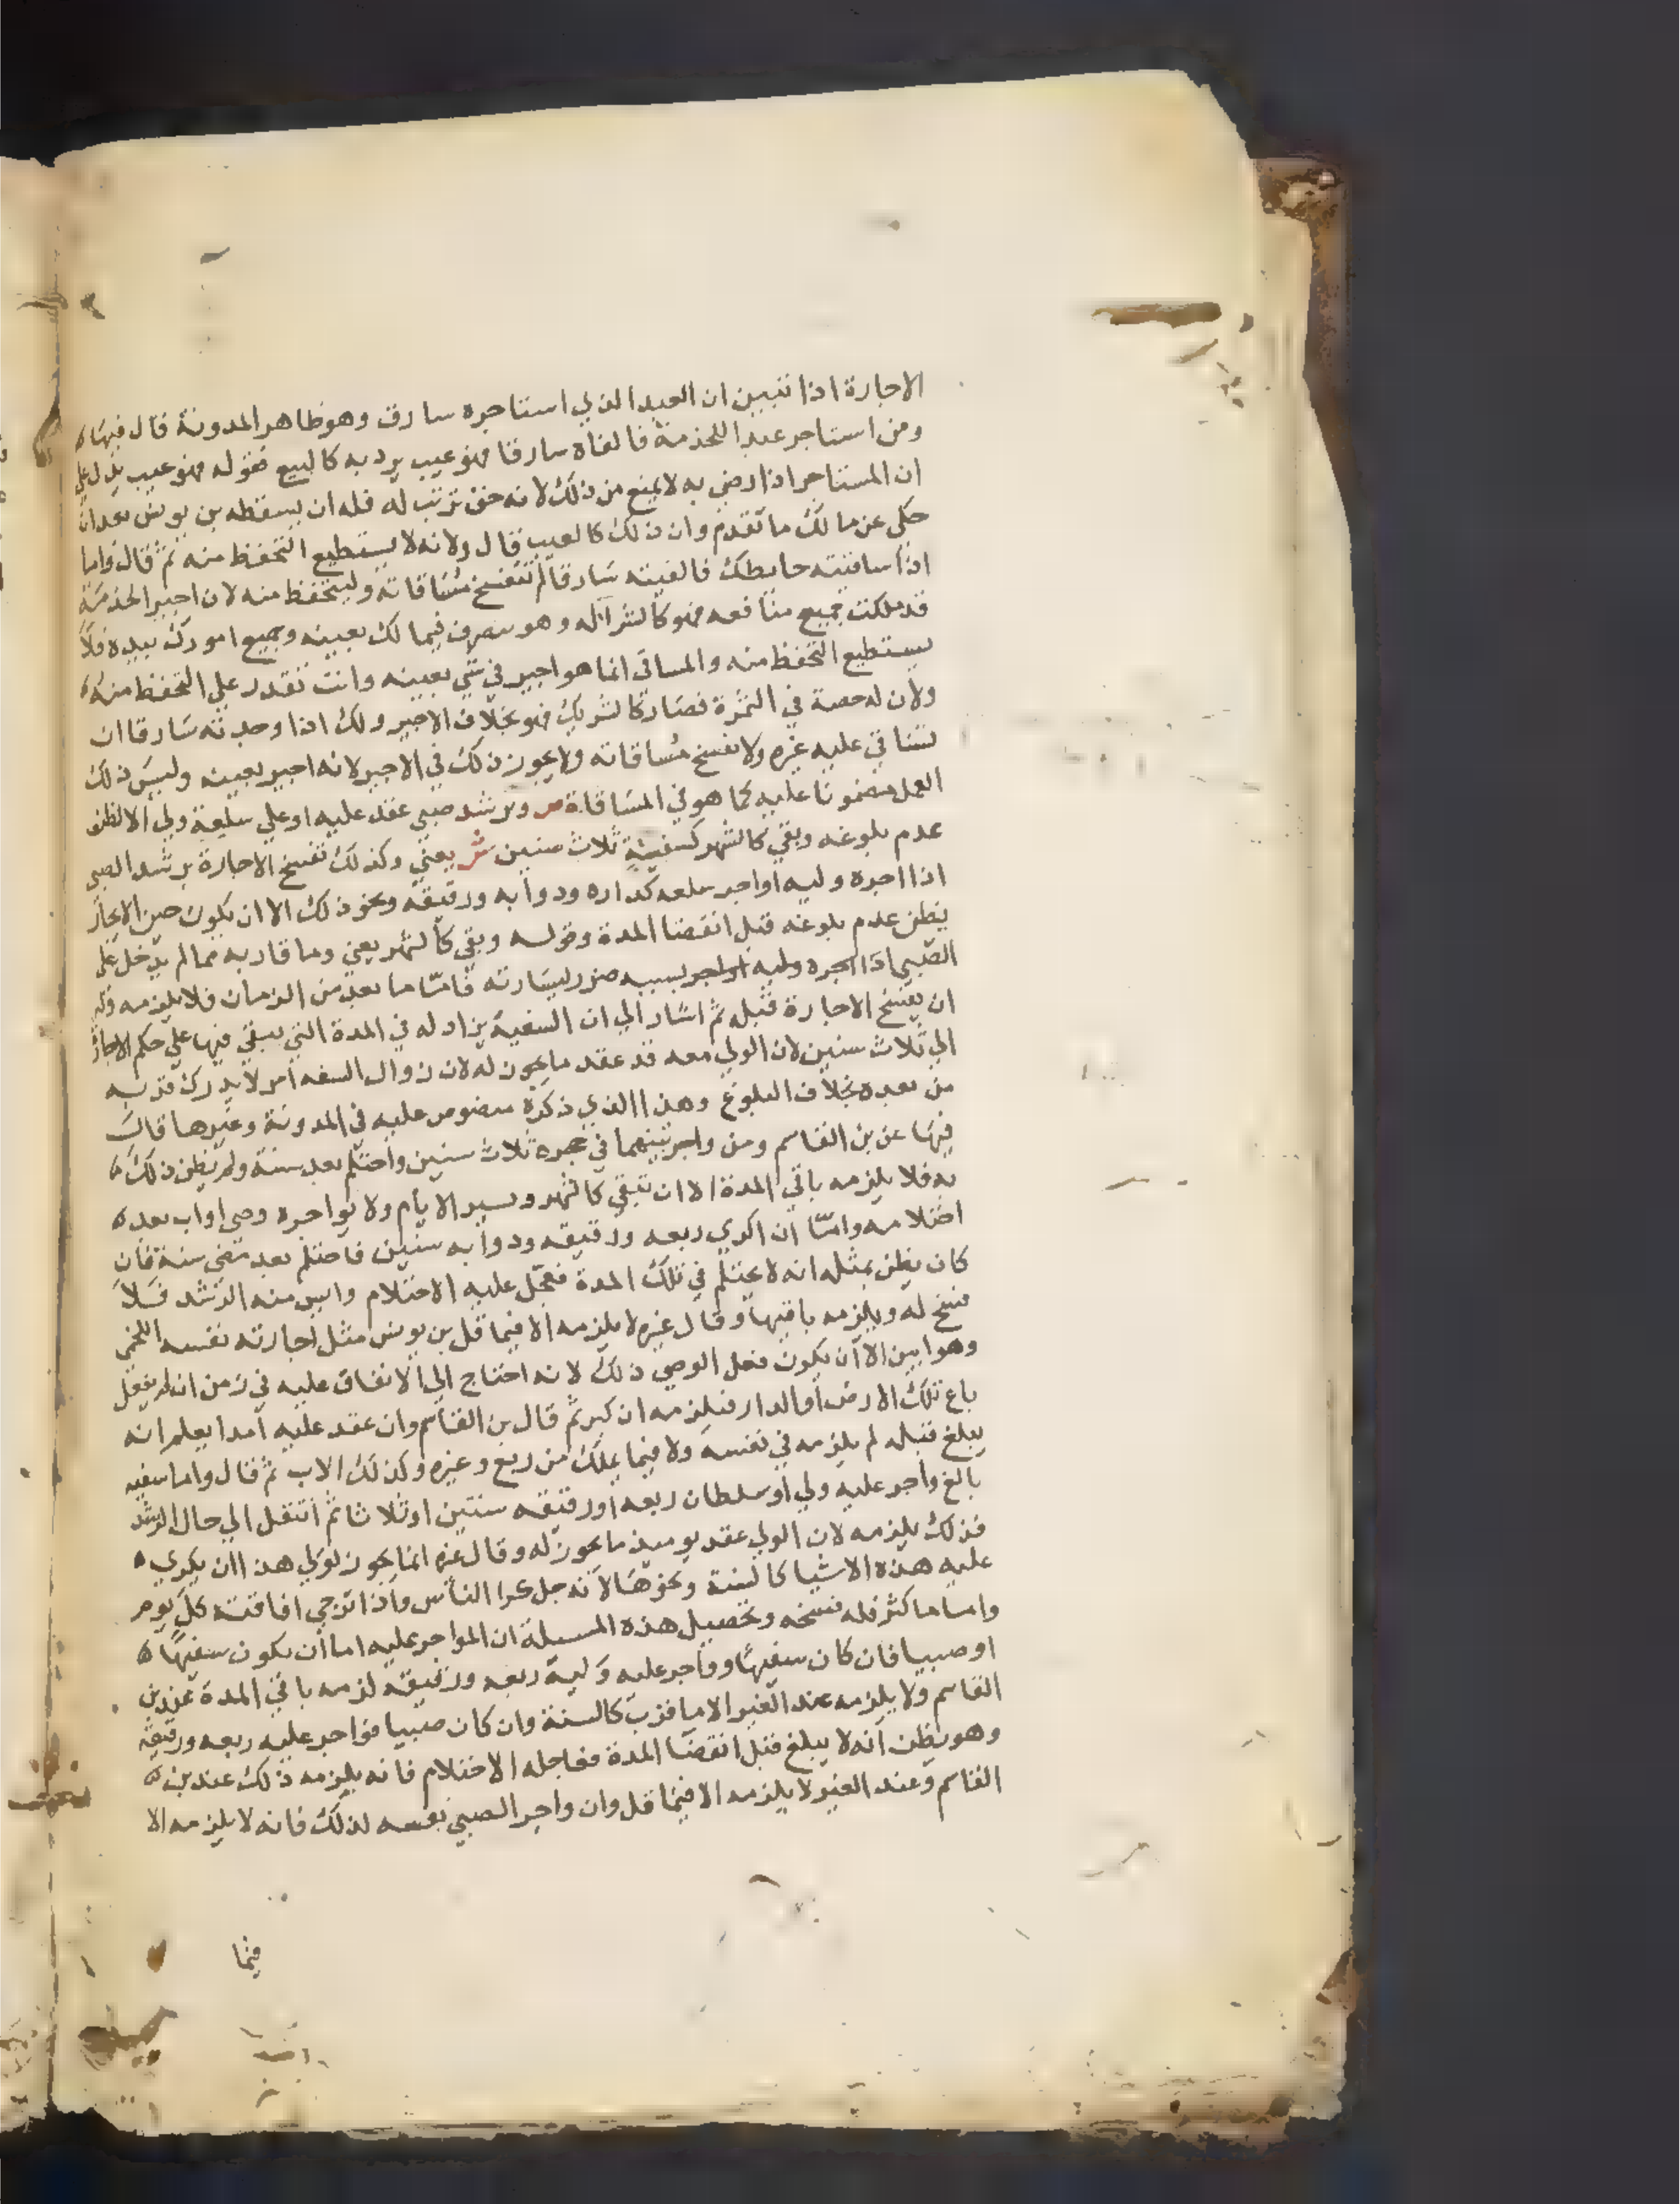 الاجارة اذا تبين ان العبد الذي استاجره سارق وهو ظاهر المدونة قال فيها
ومن استاجر عبدا للخدمة فالفاه سارقا فهو عيب يرد به كالبيع فقوله فهو عيب يدل علي
ان المستاجر اذا رضي به لا يمنع من ذلك لانه حق ترتب له فله ان يسقطه بن يونس بعد ان
حكي عن مالك ما تقدم وان ذلك كالعيب قال ولانه لا يستطيع التحفظ منه ثم قال واما
اذا ساقيته حايطك فالفيته سارقا لم تنفسخ مساقاته وليتحفظ منه لان اجير الخدمة
قد ملكت جميع منافعه فهو كالشرا له وهو متصرف فيما لك بعينه وجميع امورك بيده فلا
يستطيع التحفظ منه والمساقى انما هو اجير في شي بعينه وانت تقدر علي التحفظ منه
ولان له حصة في الثمرة فصار كالشريك فهو بخلاف الاجير ولك اذا وجدته سارقا ان
تساقي عليه غيره ولا تفسخ مساقاته ولا يجوز ذلك في الاجير لانه اجير بعينه وليس ذلك
العمل مضمونا عليه كما هو في المساقاة ص وبرشد صبي عقد عليه او علي سلعة ولي الا لظن
عدم بلوغه وبقي كالشهر كسفيه ثلاث سنين ش يعني وكذلك تفسخ الاجارة برشد الصبي
اذا اجره وليه او اجر سلعه كداره ودوابه ورقيقه ونحو ذلك الا ان يكون حين الايجار
يظن عدم بلوغه قبل انقضا المدة وقوله وبقي كالشهر يعني وما قاربه مما لم يدخل علي
الصبي اذا اجره وليه او اجر بسببه ضرر ليسارته فاما ما بعد من الزمان فلا يلزمه وله
ان يفسخ الاجارة قبله ثم اشار الي ان السفيه يزاد له في المدة التي يبقي فيها علي حكم الاجارة
الي ثلاث سنين لان الولي معه قد عقد ما يجوز له لان زوال السفه امر لا يدرك قربه
من بعده بخلاف البلوغ وهذا الذي ذكره منصوص عليه في المدونة وغيرها قال
فيها عن بن القاسم ومن واجر يتيما في حجره ثلاث سنين واحتلم بعد سنة ولم يظن ذلك
به فلا يلزمه باقي المدة الا ان تبقي كالشهر ويسير الايام ولا يواجره وصي او اب بعد
احتلامه واما ان اكري ربعه ورقيقه ودوابه سنين فاحتلم بعد مضي سنة فان
كان يظن بمثله انه لا يحتلم في تلك المدة فعجل عليه الاحتلام وانس منه الرشد فلا
فسخ له ويلزمه باقيها وقال غيره لا يلزمه الا فيما قل بن يونس مثل اجارته نفسه اللخمي
وهو ابين الا ان يكون فعل الوصي ذلك لانه احتاج الي الانفاق عليه في زمن ان لم يفعل
باع تلك الارض او الدار فيلزمه ان كبر ثم قال بن القاسم وان عقد عليه امدا يعلم انه
يبلغ قبله لم يلزمه في نفسه ولا فيما يملك من ربع وغيره وكذلك الاب ثم قال واما سفيه
بالغ واجر عليه ولي او سلطان ربعه او رقيقه سنتين او ثلاثا ثم انتقل الي حال الرشد
فذلك يلزمه لان الولي عقد يوميذ ما يجوز له وقال غيره انما يجوز لولي هذا ان يكري
عليه هذه الاشيا كالسنة ونحوها لانه جل كرا الناس واذا ترجي افاقته كل يوم
واما ما كثر فله فسخه وتحصيل هذه المسيلة ان المواجر عليه اما ان يكون سفيها
او صبيا فان كان سفيها وواجر عليه وليه ربعه ورقيقه لزمه باقي المدة عند بن
القاسم ولا يلزمه عند الغير الا ما قرب كالسنة وان كان صبيا فواجر عليه ربعه ورقيقه
وهو يظن انه لا يبلغ قبل انقضا المدة فعاجله الاحتلام فانه يلزمه ذلك عند بن
القاسم وعند الغير لا يلزمه الا فيما قل وان واجر الصبي نفسه لذلك فانه لا يلزمه الا
فيما